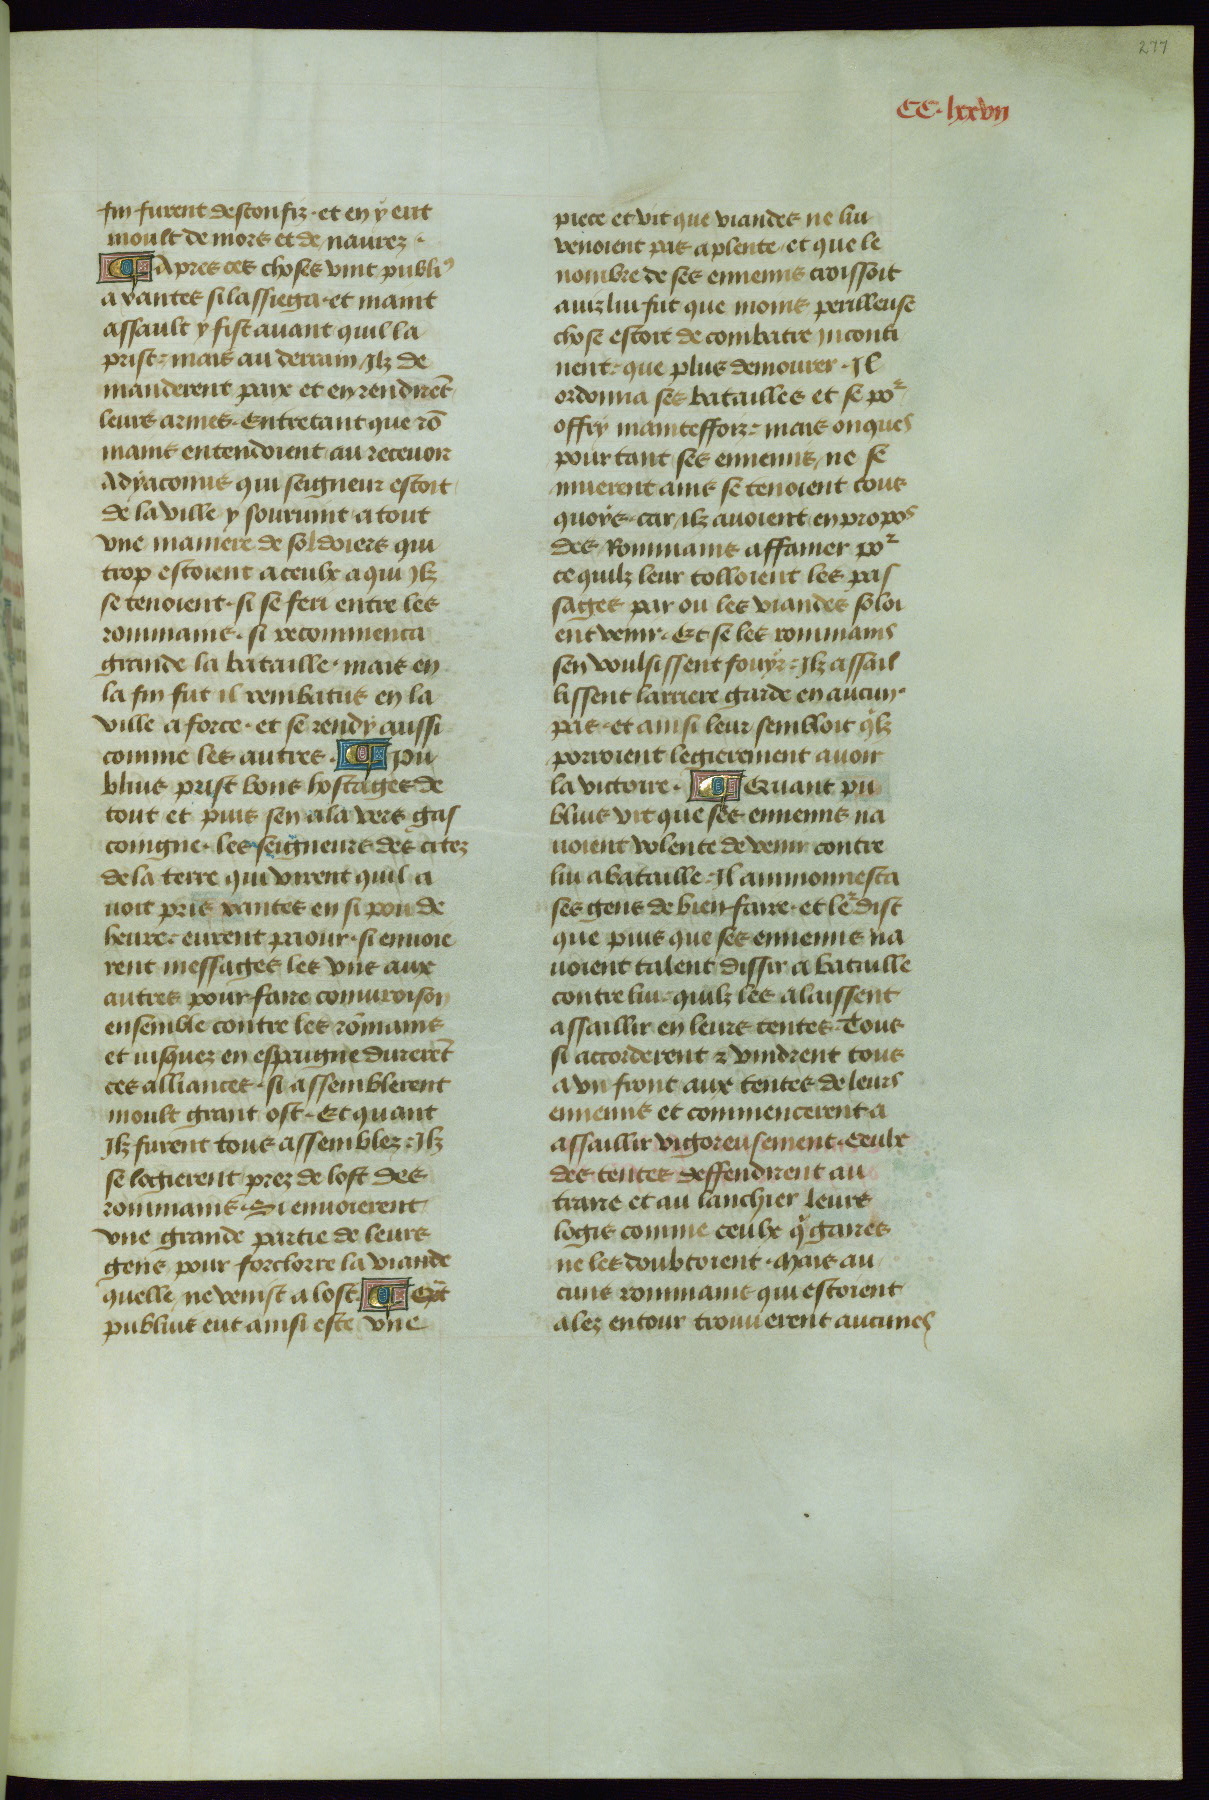 277
CC·lxxvii
fin furent desconfiz· et en y eut
moult de mors et de naurez·
¶ Apres ces choses vint publi⁹
a xantes si lassiega· et maint
assault y fist auant quil la
prist· mais au derrain Jlz de
manderent paix et en rendirẽt
leurs armes· Entretant que rõ
mains entendoient au receuoir
Adyaconus qui seigneur estoit
de la ville y souruint a tout
vne maniere de soldoiers qui
trop estoient a ceulx a qui Jlz
se tenoient· si se feri entre les
rommains· si recommenca
grande la bataille· mais en
la fin fut il rembatus en la
ville a force· et se rendy aussi
comme les autres· ¶ Pu
blius prist bons hostages de
tout et puis sen ala vers gas
coingne· les seigneurs des citez
de la terre qui virent quil a
uoit pris xantes en si pou de
heure· eurent paour· si enuoie
rent messages les vns aux
autres pour faire coniuroison
ensemble contre les rõmains
et iusquez en espaigne durerẽt
ces alliances· si assemblerent
moult grant ost· Et quant
Jlz furent tous assemblez· Jlz
se logierent prez de lost des
rommains· Si enuoierent
vne grande partie de leurs
gens pour forclorre la viande
quelle ne venist a lost ¶ Et
publius eut ainsi este vne
piece et vit que viandes ne lui
venoient pas a plente· et que le
nombre de ses ennemis croissoit
auiz lui fut que moins perilleuse
chose estoit de combatre Jnconti
nent· que plus demourer· Jl
ordonna ses batailles et se poᷣ
offry mainteffoiz· mais onques
pour tant ses ennemis ne se
muerent ains se tenoient tous
quoys· car Jlz auoient en propos
des Rommains affamer poᷣ
ce quilz leur tolloient les pas
sages par ou les viandes soloi
ent venir· Et se les rommains
sen voulsissent fouyr· Jlz assail
lissent larriere garde en aucun·
pas· et ainsi leur sembloit qͥlz
porroient legierement auoir
la victoire· ¶ Quant pu
blius vit que ses ennemis na
uoient volente de venir contre
lui a bataille· Jl ammonnesta
ses gens de bien faire· et leᷣ dist
que puis que ses ennemis na
uoient talent dissir a bataille
contre lui· quilz les alaissent
assaillir en leurs tentes· Tous
si accorderent ⁊ vindrent tous
a vn front aux tentes de leurs
ennemis et commencerent a
assaillir vigoreusement· Ceulx
des tentes deffendirent au
traire et au lanchier leurs
logis comme ceulx qͥ gaires
ne les doubtoient· Mais au
cuns rommains qui estoient
alez entour trouuerent aucunes